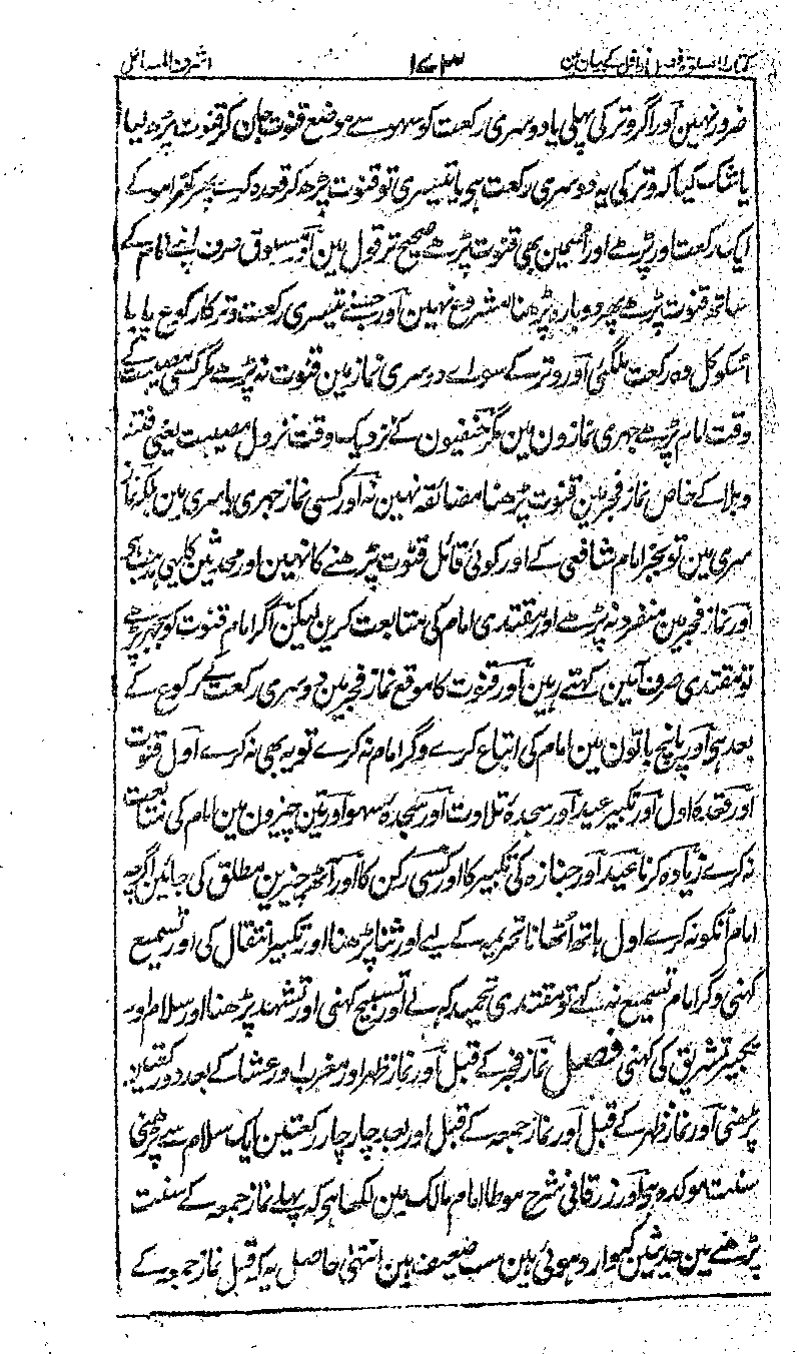 کتاب الصلوۃ فصل نوافل کے بیان مین ۱۷۳ اشرف المسائل
ضرور نہین اور اگر وتر کی پہلی یا دوسری رکعت کو سہو سے موضع قنوت جان کر قنوت پڑھ لیا
یا شک کیا کہ وتر کی یہ دوسری رکعت ہی یا تیسری تو قنوت پڑھ کر قعدہ کرے پھر کھڑا ہو کے
ایک رکعت اور پڑھے اور اسمین بھی قنوت پڑھے صحیح تر قول مین اور مسبوق صرف اپنے امام کے
ساتھ قنوت پڑھے پھر دوبارہ پڑھنا مشروع نہین اور جسنے تیسری رکعت وتر کا رکوع پایا
اسکو کل وہ رکعت ملگئی اور وتر کے سوا دوسری نماز مین قنوت نہ پڑھے مگر کسی مصیبت کے
وقت امام پڑھے جہری نمازون مین مگر حنفیون کے نزدیک وقت نزول مصیبت یعنی فتنہ
و بلا کے خاص نماز فجر مین قنوت پڑھنا مضائقہ نہین نہ اور کسی نماز جہری یا سری مین بلکہ نماز
سری مین تو بجز امام شافعی کے اور کوئی قائل قنوت پڑھنے کا نہین اور محدثین کا یہی مذہب ہی
اور نماز فجر مین منفرد نہ پڑھے اور مقتدی امام کی متابعت کرین لیکن اگر امام قنوت کو بجہر پڑھے
تو مقتدی صرف آمین کہتے رہین اور قنوت کا موقع نماز فجر مین دوسری رکعت کے رکوع کے
بعد ہی اور پانچ باتون مین امام کی اتباع کرے وگر امام نہ کرے تو یہ بھی نہ کرے اول قنوت
اور قعدہ اول اور تکبیر عید اور سجدہ تلاوت اور سجدہ سہو اور تین چیزون مین امام کی متابعت
نہ کرے زیادہ کرنا عید اور جنازہ کی تکبیر کا اور کسی رکن کا اور آٹھ چیزین مطلق کی جائین اگرچہ
امام انکو نہ کرے اول ہاتھ اٹھانا تحریمہ کے لیے اور ثنا پڑھنا اور تکبیر انتقال کی اور تسمیع
کہنی وگر امام تسمیع نہ کہے تو مقتدی تحمید کہہ لے اور تسبیح کہنی اور تشہد پڑھنا اور سلام اور
تکبیر تشریق کی کہنی فصل نماز فجر کے قبل اور نماز ظہر اور مغرب اور عشا کے بعد دو رکعتین
پڑھنی اور نماز ظہر کے قبل اور نماز جمعہ کے قبل اور بعد چار چار رکعتین ایک سلام سے پڑھنی
سنت موکدہ ہی اور زرقانی شرح موطا امام مالک مین لکھا ہی کہ پہلے نماز جمعہ کے سنت
پڑھنے مین حدیثین وارد ہوئی ہین سب ضعیف ہین انتہی حاصل یہ کہ قبل نماز جمعہ کے